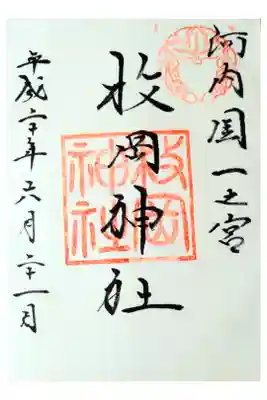 河内国一之宮
枚岡神社
枚岡神社
平成二十年六月二十一日